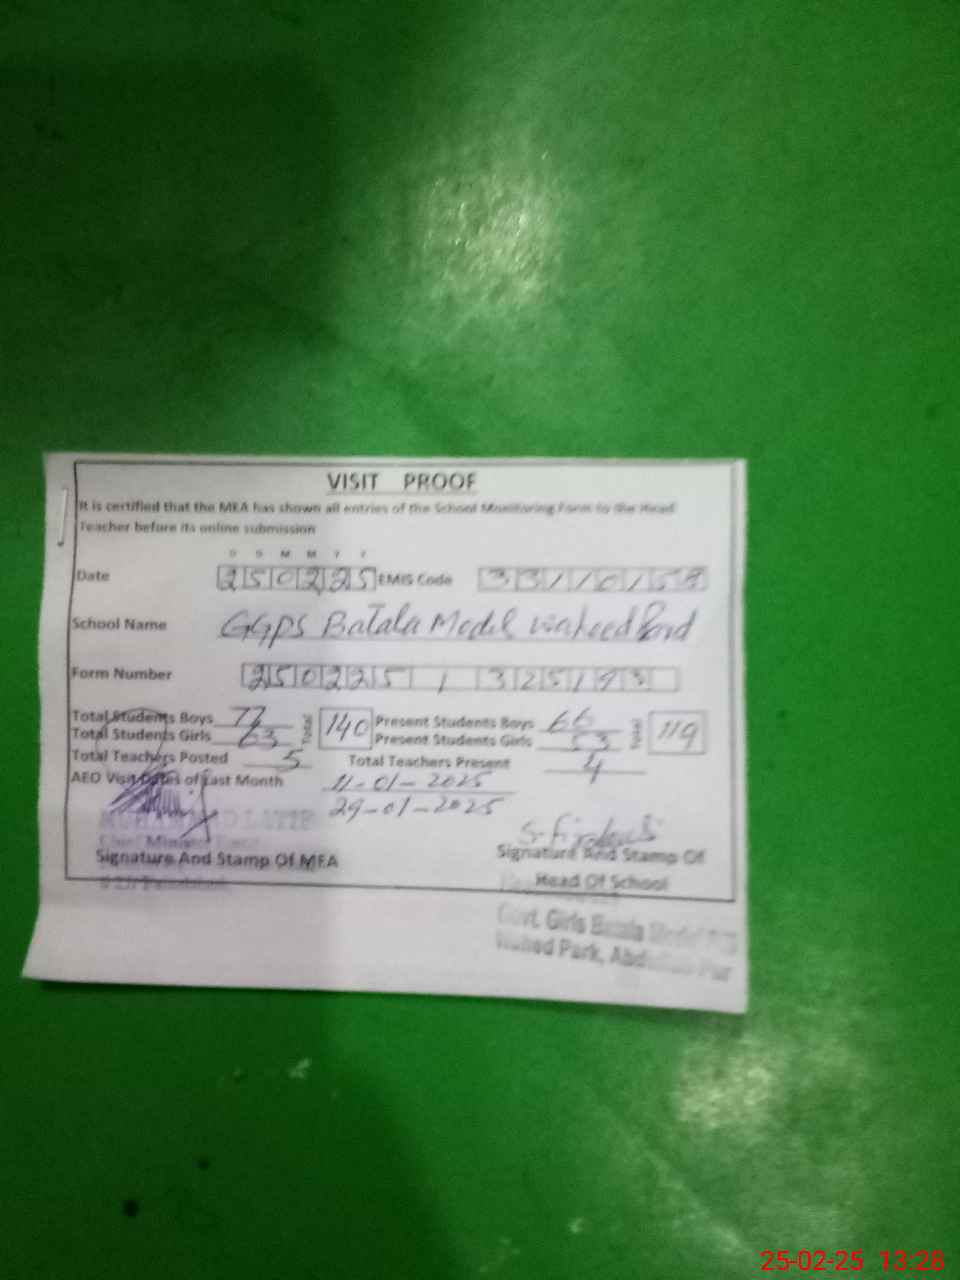 VISIT PROOF
It is certified that the MEA has shown all entries of the School Monitoring Form to the Head
Teacher before its online submission
D D M M Y Y
Date 250225 EMIS Code 33110158
School Name GGPS Batala Model
Form Number 250225 1 325193
Total Students Boys 77 Total 140 Present Students Boys 66 Total 119
Total Students Girls 63 Present Students Girls 53
Total Teachers Posted 5 Total Teachers Present 4
AEO Visit Dates of Last Month 11-01-2025
29-01-2025
S. Firdous
Signature And Stamp Of MEA
Signature And Stamp Of
Head Of School
Govt. Girls Batala Model
Wahed Park,
25-02-25 13:28